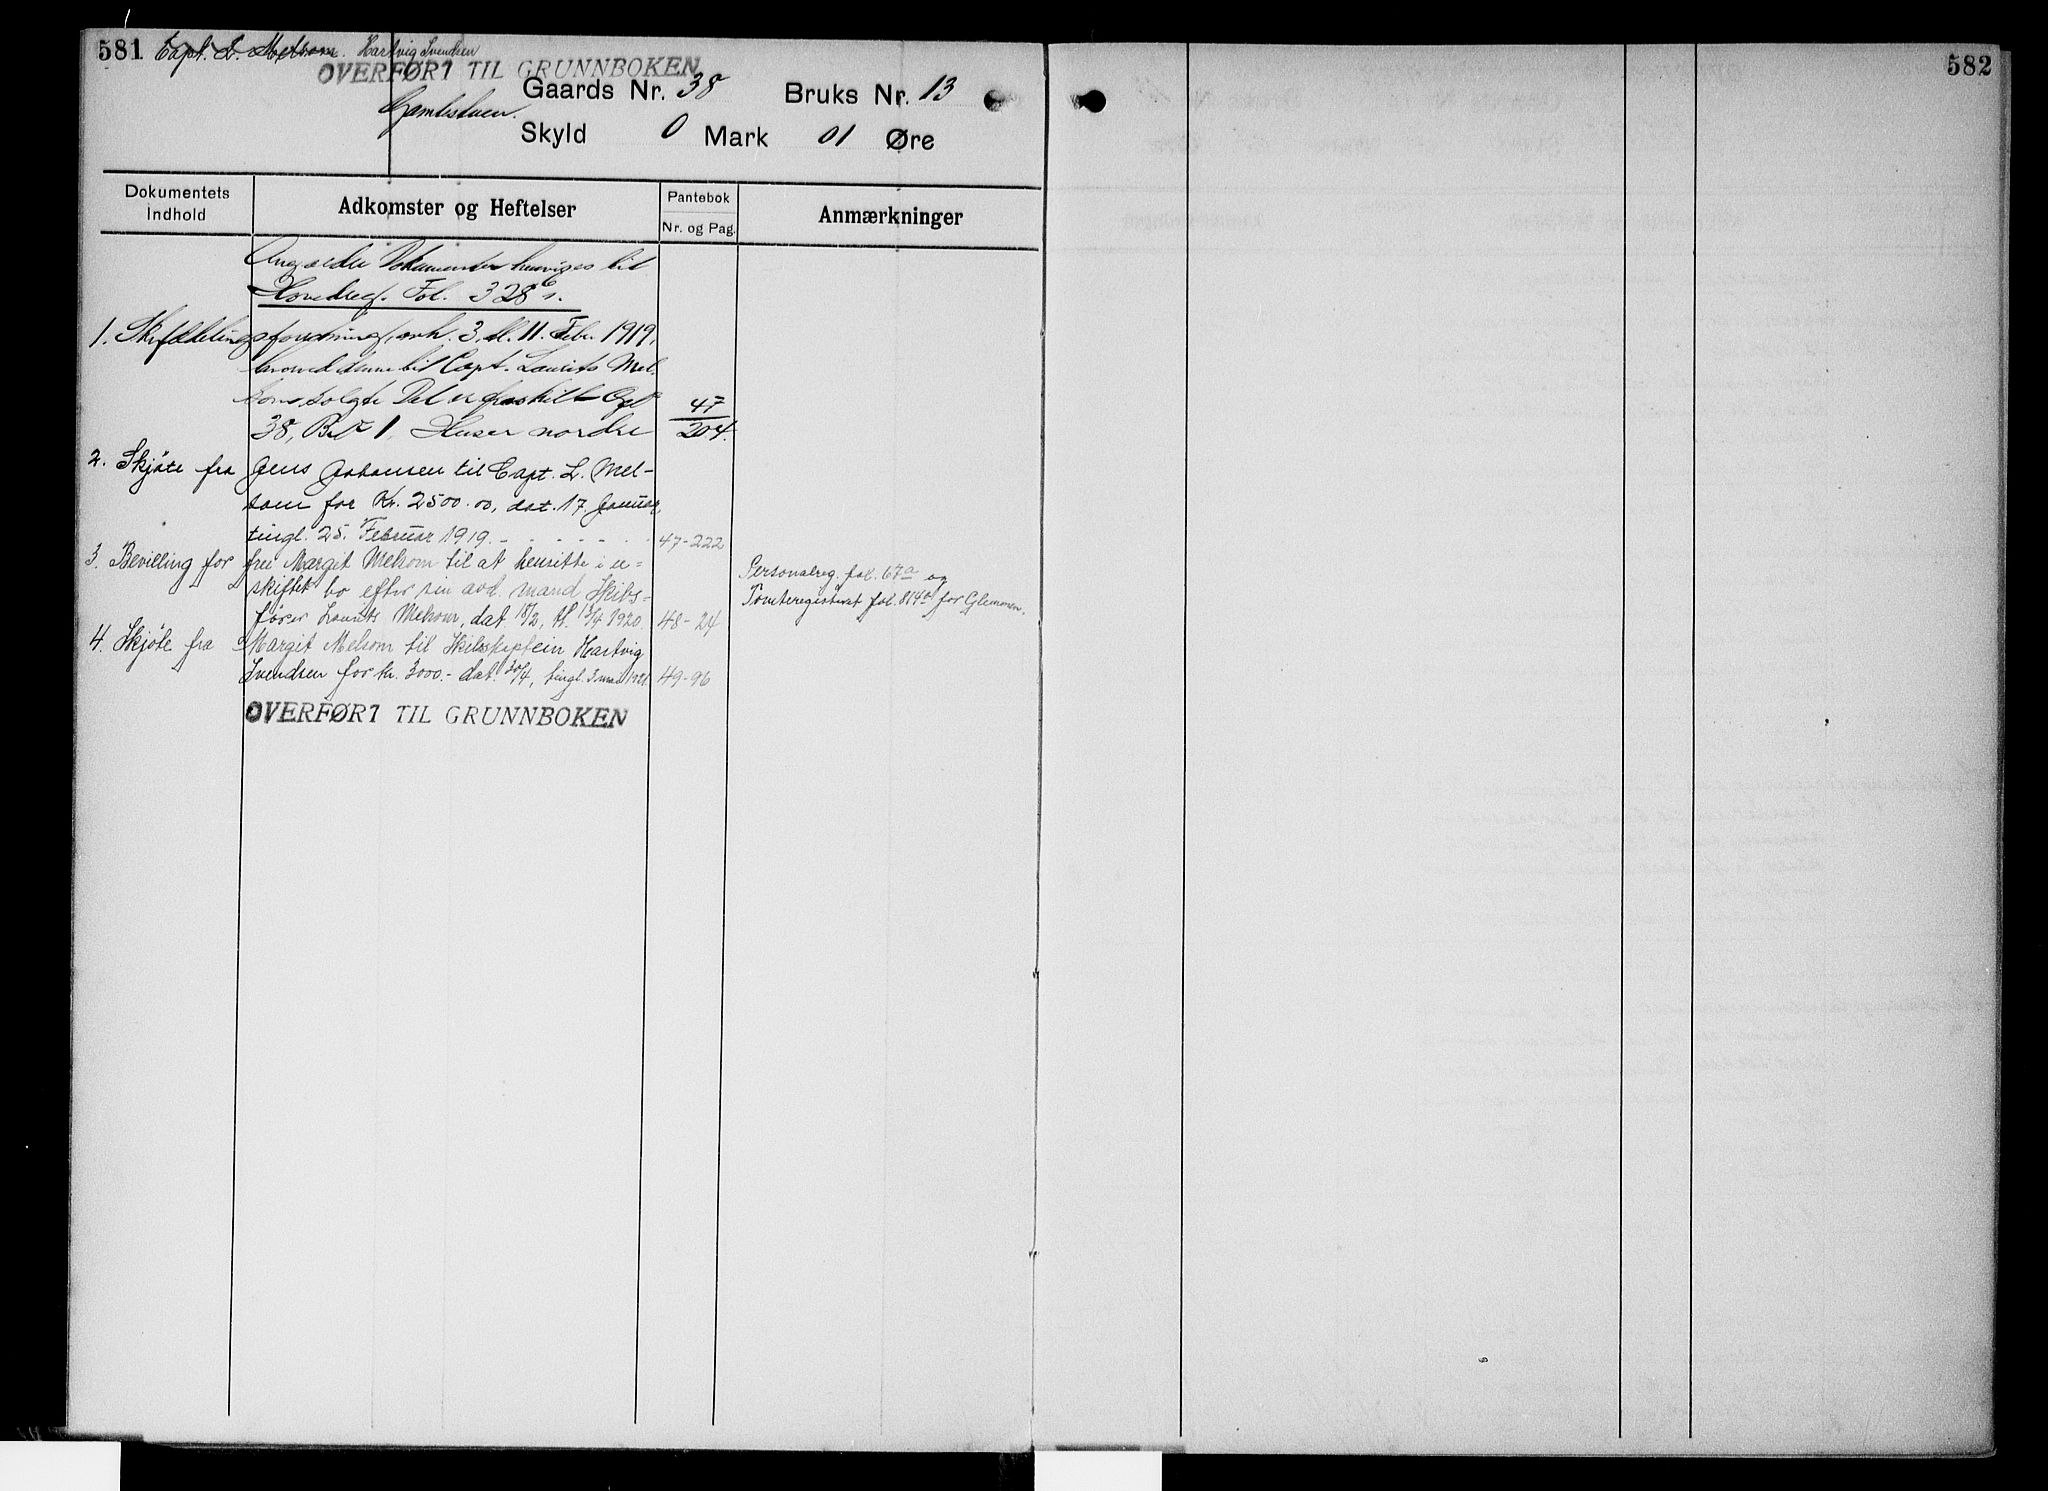 581 Capt. L. Melsom. Hartvig Svendsen
OVERFØRT TIL GRUNNBOKEN
582
Gaards Nr. 38 Bruks Nr. 13
Gamlestuen.
Skyld 0 Mark 01 Øre
Dokumentets Indhold
Adkomster og Heftelser
Pantebok
Nr. og Pag.
Anmærkninger
Angaaende Dokumenter henvises til
Hovedreg. Fol. 328
1. Skylddelingsforretning, avh. 3, tl. 11. Febr. 1919,
hvorved denne til Capt. Laurits Mel-
som solgte Del er fraskilt Gn
38, Bn 1, Huser nordre 47/204.
2. Skjøte fra Jens Johansen til Capt. L. Mel-
som for Kr. 2500.00, dat. 17. Januar,
tingl. 25. Februar 1919. 47-222
3. Bevilling for frü Margit Melsom til at hensitte i u-
skiftet bo efter sin avd. mand Skibs-
fører Laurits Melsom, dat. 18/2, tl. 13/4 1920. 48-24
Personalreg. fol. 67a og
Tomteregisteret fol. 814 for Glemmen.
4. Skjøte fra Margit Melsom til Skibskaptein Hartvig
Svendsen for kr. 3000.- dat. 30/4, tingl. 3 mai 1921. 49-96
OVERFØRT TIL GRUNNBOKEN